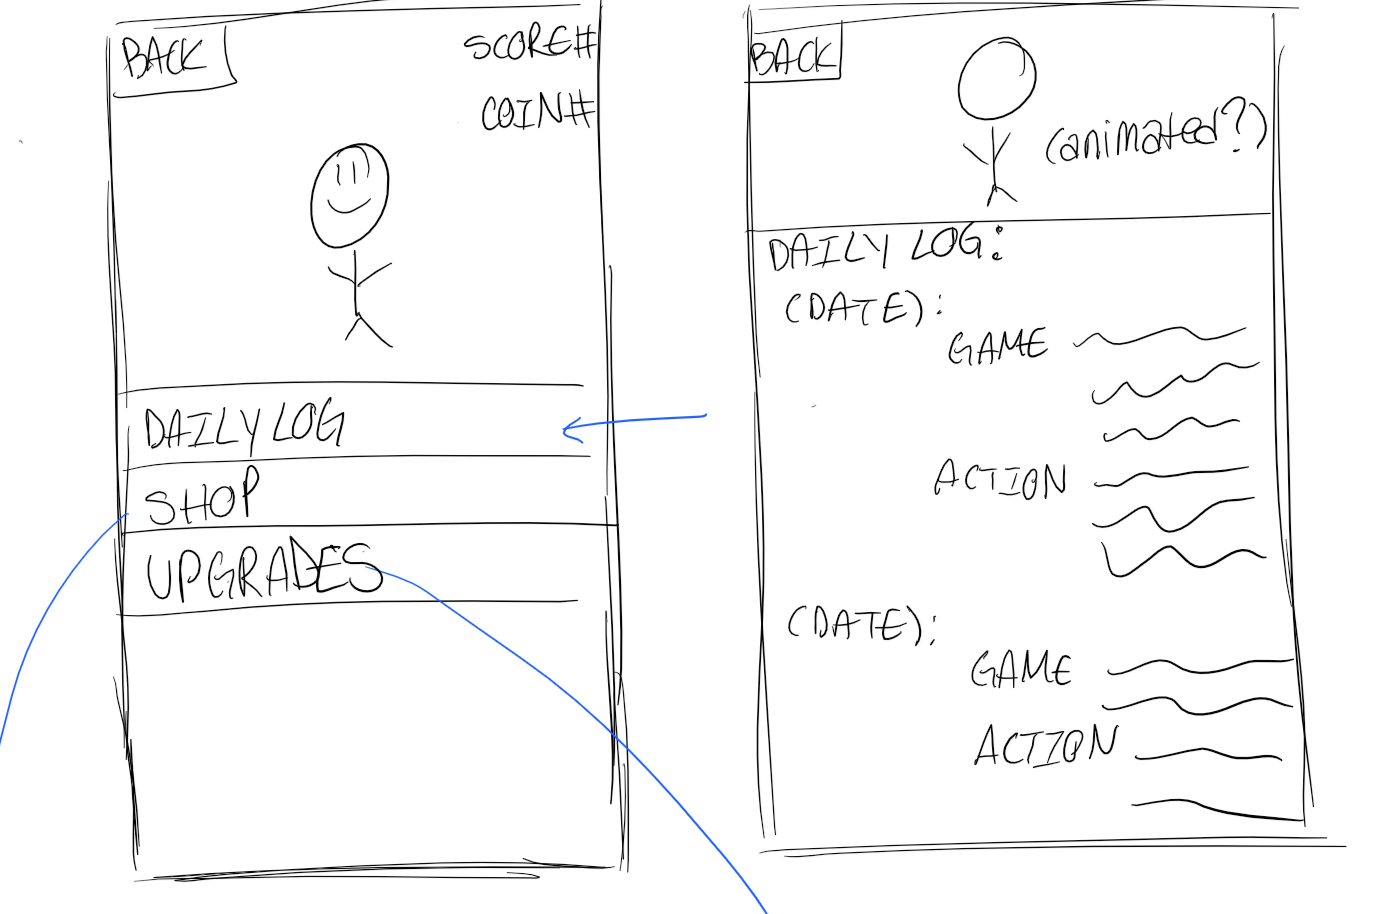 BACK
SCORE#
COIN#
DAILY LOG
SHOP
UPGRADES
BACK
(animated?)
DAILY LOG:
(DATE):
GAME
ACTION
(DATE):
GAME
ACTION